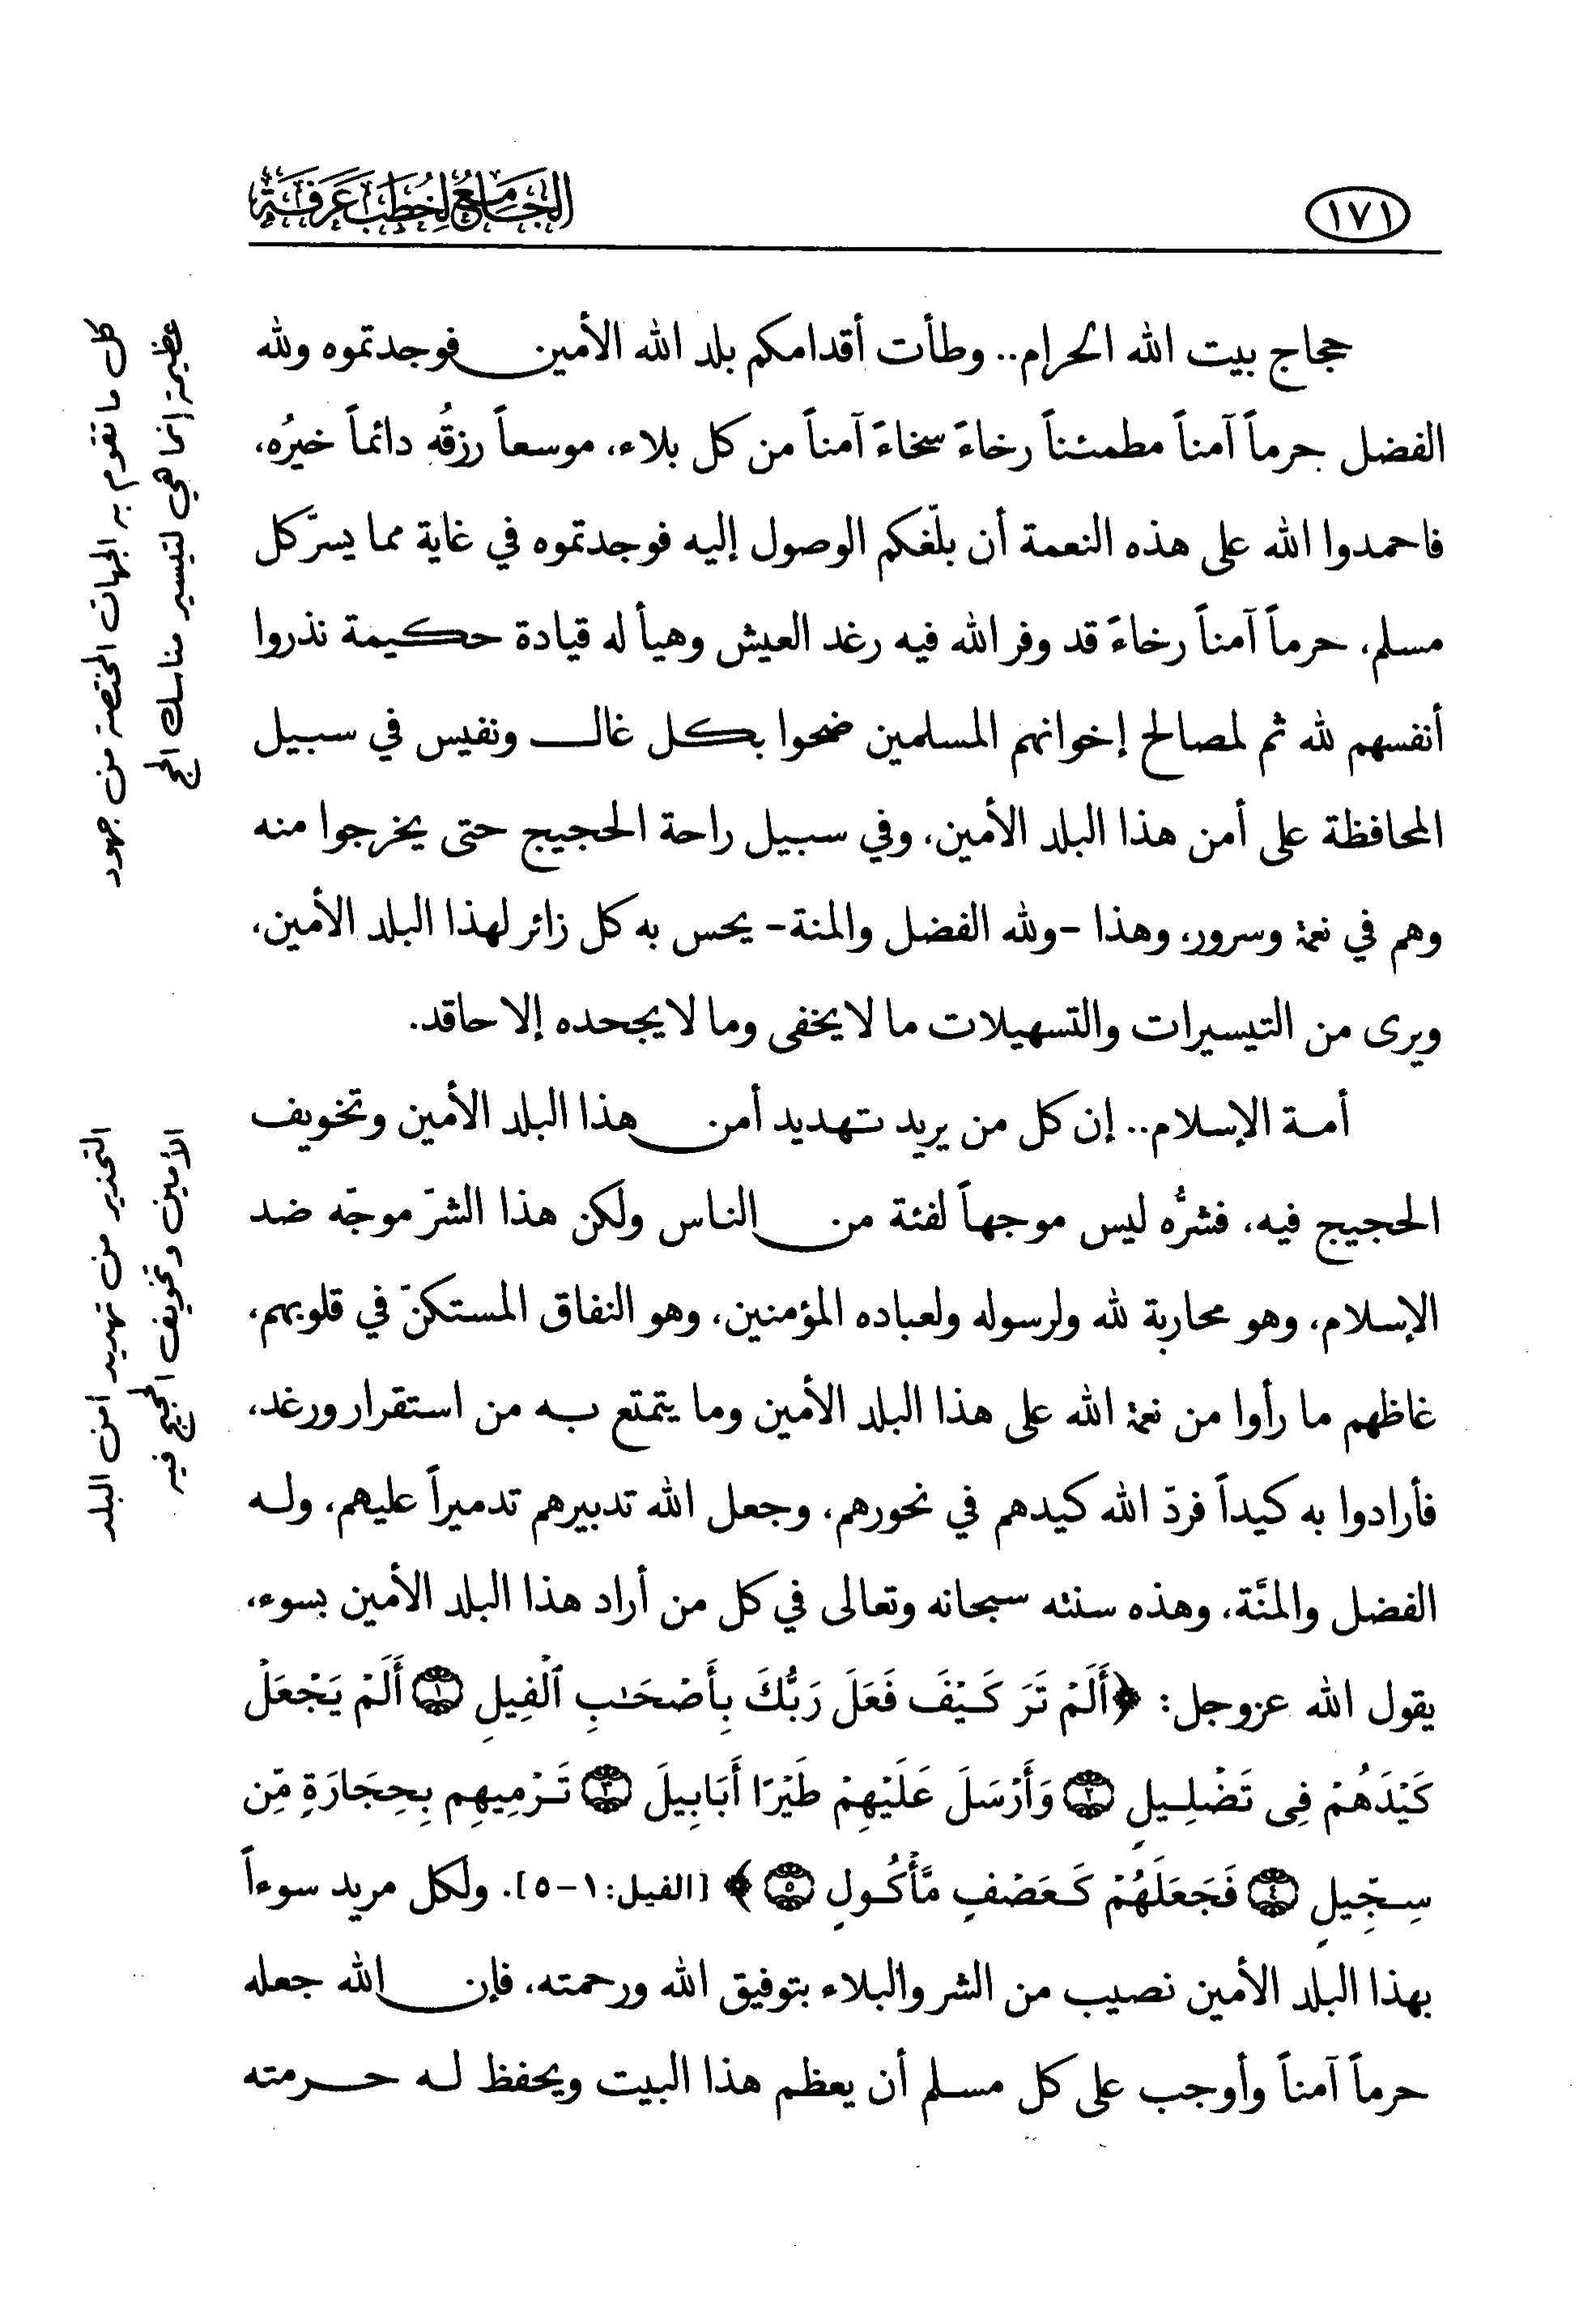 ١٧١
الجامع لخطب عرفة
حجاج بيت الله الحرام.. وطأت أقدامكم بلد الله الأمين فوجدتموه ولله
الفضل حرماً آمناً مطمئناً رخاءً سخاءً آمناً من كل بلاء، موسعاً رزقُه دائماً خيرُه،
فاحمدوا الله على هذه النعمة أن بلّغكم الوصول إليه فوجدتموه في غاية مما يسرّ كل
مسلم، حرماً آمناً رخاءً قد وفر الله فيه رغد العيش وهيأ له قيادة حكيمة نذروا
أنفسهم لله ثم لمصالح إخوانهم المسلمين ضحوا بكل غال ونفيس في سبيل
المحافظة على أمن هذا البلد الأمين، وفي سبيل راحة الحجيج حتى يخرجوا منه
وهم في نعمة وسرور، وهذا -ولله الفضل والمنة- يحس به كل زائر لهذا البلد الأمين،
ويرى من التيسيرات والتسهيلات ما لا يخفى وما لا يجحده إلا حاقد.
أمة الإسلام.. إن كل من يريد تهديد أمن هذا البلد الأمين وتخويف
الحجيج فيه، فشرُّه ليس موجهاً لفئة من الناس ولكن هذا الشرّ موجّه ضد
الإسلام، وهو محاربة لله ولرسوله ولعباده المؤمنين، وهو النفاق المستكنّ في قلوبهم،
غاظهم ما رأوا من نعمة الله على هذا البلد الأمين وما يتمتع به من استقرار ورغد،
فأرادوا به كيداً فردّ الله كيدهم في نحورهم، وجعل الله تدبيرهم تدميراً عليهم، وله
الفضل والمنَّة، وهذه سنته سبحانه وتعالى في كل من أراد هذا البلد الأمين بسوء،
يقول الله عزوجل: ﴿أَلَمْ تَرَ كَيْفَ فَعَلَ رَبُّكَ بِأَصْحَٰبِ ٱلْفِيلِ ۝١ أَلَمْ يَجْعَلْ
كَيْدَهُمْ فِى تَضْلِيلٍ ۝٢ وَأَرْسَلَ عَلَيْهِمْ طَيْرًا أَبَابِيلَ ۝٣ تَرْمِيهِم بِحِجَارَةٍ مِّن
سِجِّيلٍ ۝٤ فَجَعَلَهُمْ كَعَصْفٍ مَّأْكُولٍ ۝٥﴾ [الفيل: ١-٥]. ولكل مريد سوءاً
بهذا البلد الأمين نصيب من الشر والبلاء بتوفيق الله ورحمته، فإن الله جعله
حرماً آمناً وأوجب على كل مسلم أن يعظم هذا البيت ويحفظ له حرمته
كل ما تقوم به الجهات المختصة من جهود
عظيمة إنما هي لتيسير مناسك الحج
التحذير من تهديد أمن البلد
الأمين وتخويف الحجيج فيه